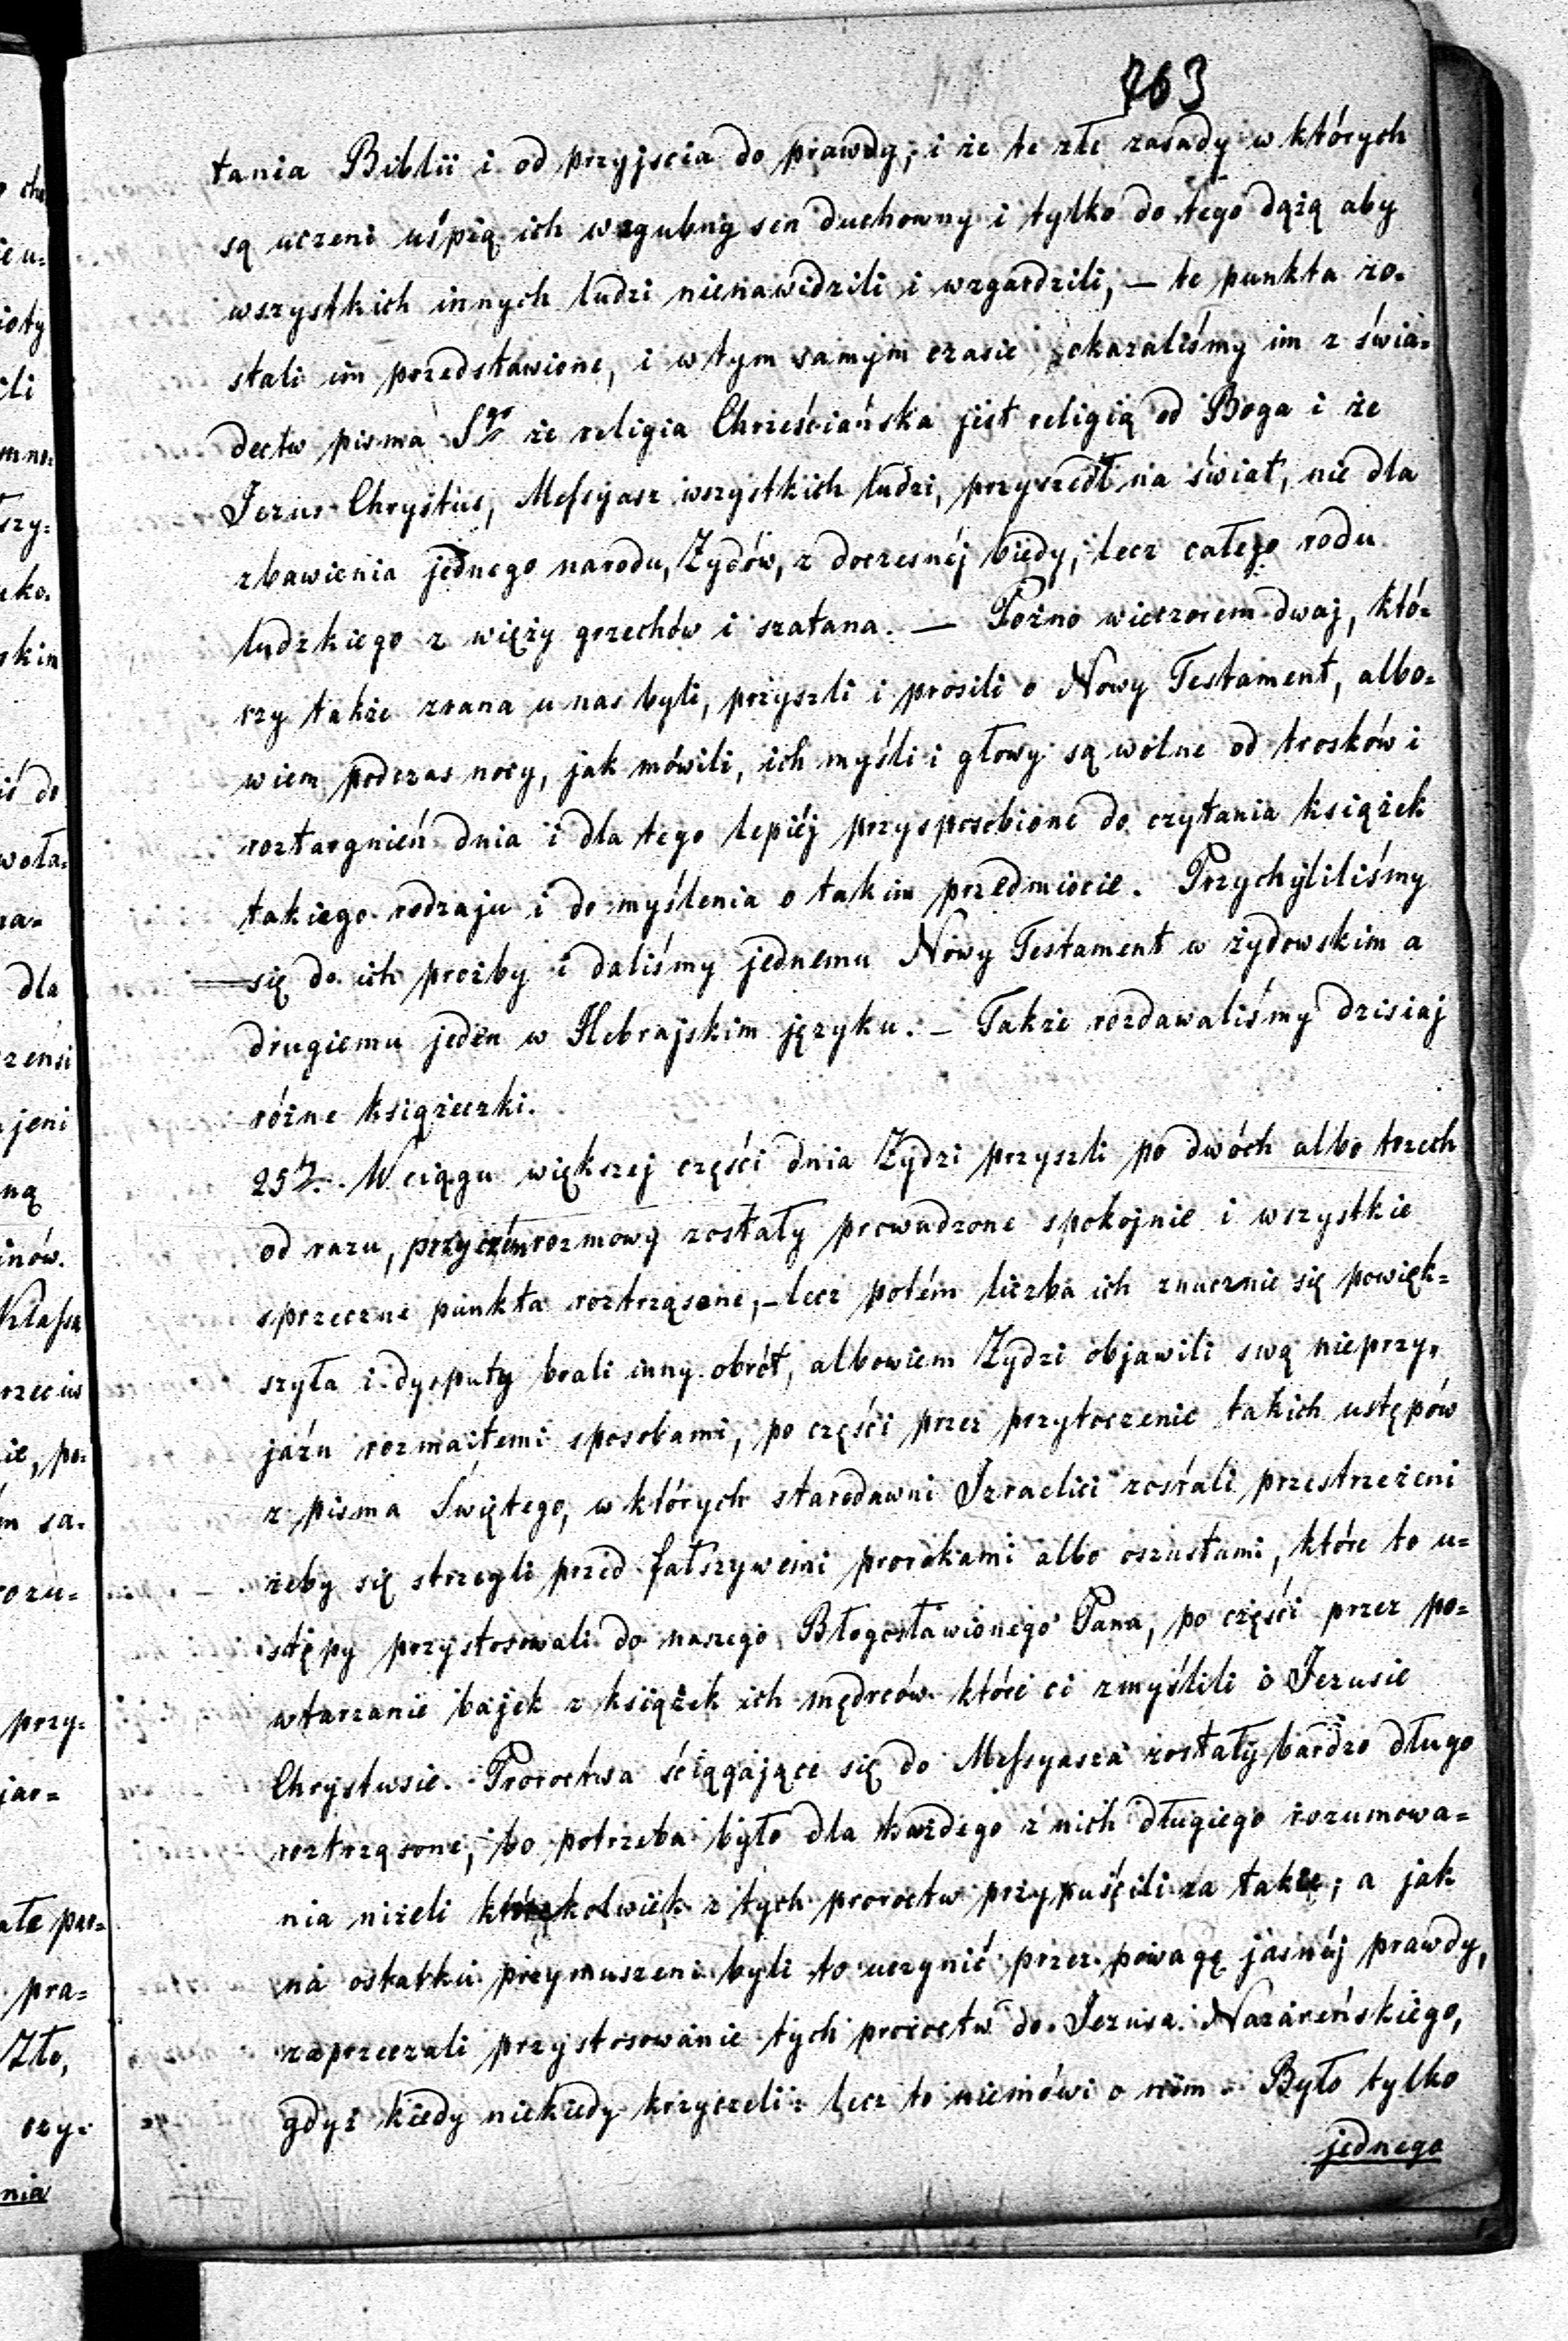 763
tania Biblii i od przyjscia do prawdy; i że te złe zasady w których
są uczeni uśpią ich w zgubny sen duchowny i tylko do tego dążą aby
wszystkich innych ludzi nienawidzili i wzgardzili, — te punkta zo-
stali im przedstawione, i w tym samym czasie okazaliśmy im z świa-
dectw pisma Sgo że religia Chrześciańska jest religią od Boga i że
Jezus Chrystus, Messyasz wszystkich ludzi, przyszedł na świat, nie dla
zbawienia jednego narodu, Żydów, z doczesnéj biedy, lecz całego rodu
ludzkiego z więzy grzechów i szatana. — Pożno wieczorem dwaj, któ-
rzy także zrana u nas byli, przyszli i prosili o Nowy Testament, albo-
wiem podczas nocy, jak mówili, ich myśli i głowy są wolne od trosków i
roztargnień dnia i dla tego lepiéj przysposobione do czytania książek
takiego rodzaju i do myślenia o takim przedmiocie. Przychyliliśmy
się do ich prożby i daliśmy jednemu Nowy Testament w żydowskim a
drugiemu jeden w Hebrajskim języku. — Także rozdawaliśmy dzisiaj
różne książeczki.
25 W ciągu większej części dnia Żydzi przyszli po dwóch albo trzech
od razu, przyczém rozmowy zostały prowadzone spokojnie i wszystkie
sprzeczne punkta roztrząsane, — lecz potém liczba ich znacznie się powięk-
szyła i dysputy brali inny obrót, albowiem Żydzi objawili swą nieprzy-
jaźń rozmaitemi sposobami, po części przez przytoczenie takich ustępów
z pisma Świętego, w których starodawni Izraelici zostali przestrzeżeni
żeby się strzegli przed fałszywemi prorokami albo oszustami, które to u-
stępy przystosowali do naszego Błogosławionego Pana, po części przez po-
wtarzanie bajek z książek ich mędrców które ci zmyślili o Jezusie
Chrystusie. Proroctwa ściągające się do Messyasza zostały bardzo długo
roztrząsone, bo potrzeba było dla każdego z nich długiego rozumowa-
nia niżeli którekolwiek z tych proroctw przypuścili za takie; a jak
na ostatku przymuszeni byli to uczynić przez powagę jasnéj prawdy,
zaprzeczali przystosowanie tych proroctw do Jezusa Nazareńskiego,
gdyż kiedy niekiedy krzyczeli: lecz to niemówi o nim. Było tylko
jednego